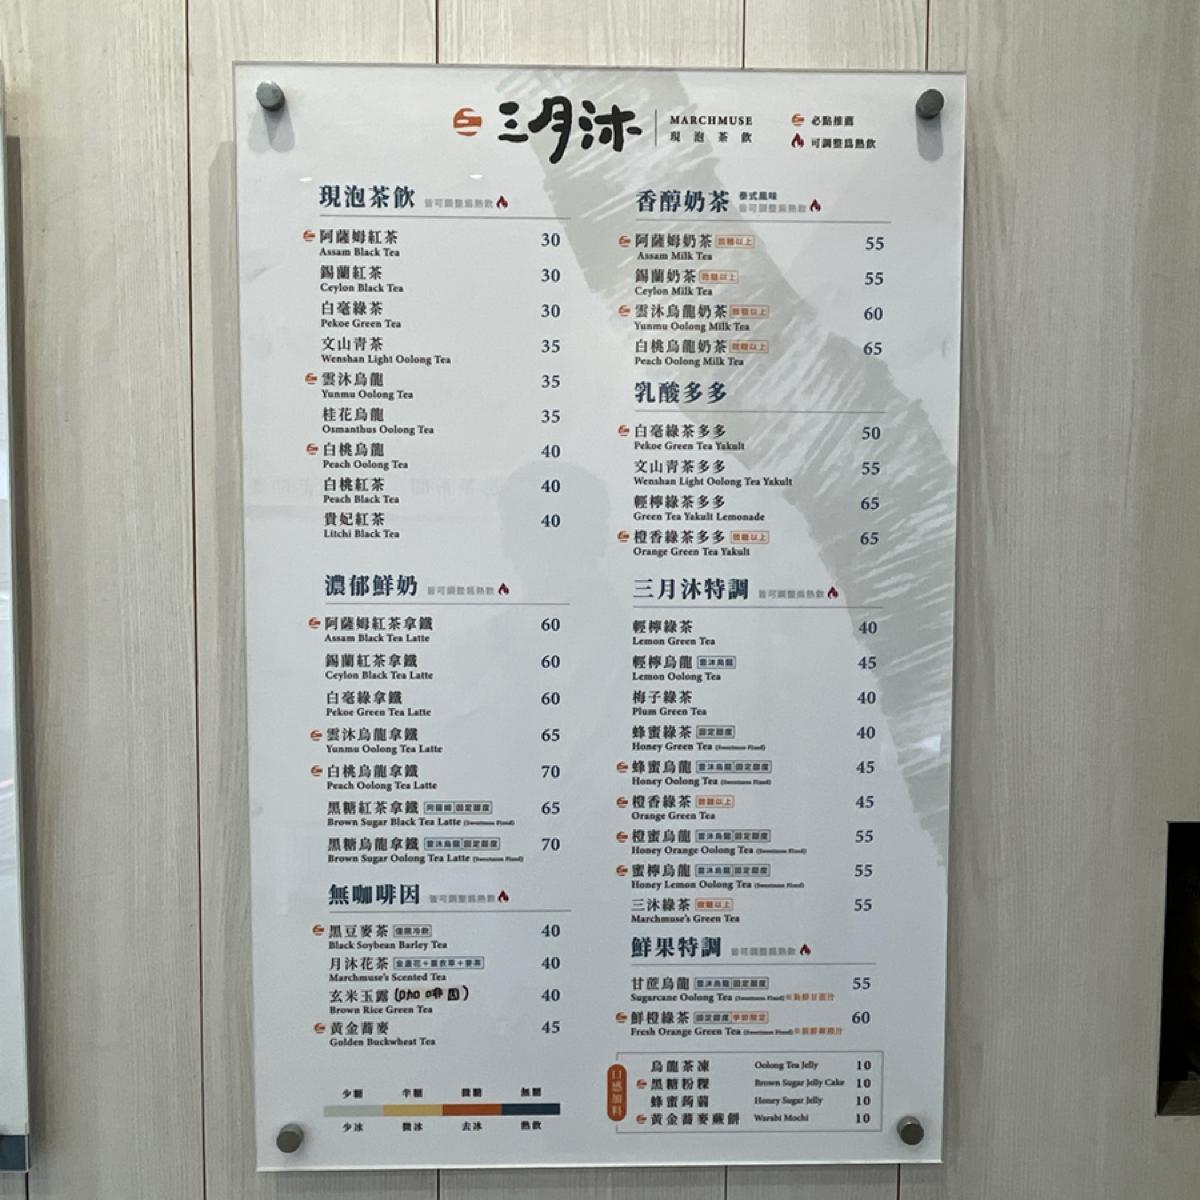 三月沐
MARCHMUSE
現泡茶飲
必點推薦
可調整為熱飲
現泡茶飲 皆可調整為熱飲
阿薩姆紅茶 30
Assam Black Tea
錫蘭紅茶 30
Ceylon Black Tea
白毫綠茶 30
Pekoe Green Tea
文山青茶 35
Wenshan Light Oolong Tea
雲沐烏龍 35
Yunmu Oolong Tea
桂花烏龍 35
Osmanthus Oolong Tea
白桃烏龍 40
Peach Oolong Tea
白桃紅茶 40
Peach Black Tea
貴妃紅茶 40
Litchi Black Tea
濃郁鮮奶 皆可調整為熱飲
阿薩姆紅茶拿鐵 60
Assam Black Tea Latte
錫蘭紅茶拿鐵 60
Ceylon Black Tea Latte
白毫綠拿鐵 60
Pekoe Green Tea Latte
雲沐烏龍拿鐵 65
Yunmu Oolong Tea Latte
白桃烏龍拿鐵 70
Peach Oolong Tea Latte
黑糖紅茶拿鐵 阿薩姆 固定甜度 65
Brown Sugar Black Tea Latte (Sweetness Fixed)
黑糖烏龍拿鐵 雲沐烏龍 固定甜度 70
Brown Sugar Oolong Tea Latte (Sweetness Fixed)
無咖啡因 皆可調整為熱飲
黑豆麥茶 僅限冷飲 40
Black Soybean Barley Tea
月沐花茶 40
Marchmuse's Scented Tea
玄米玉露 (咖啡因) 40
Brown Rice Green Tea
黃金蕎麥 45
Golden Buckwheat Tea
少糖 半糖 微糖 無糖
少冰 微冰 去冰 熱飲
香醇奶茶 泰式風味
皆可調整為熱飲
阿薩姆奶茶 微糖以上 55
Assam Milk Tea
錫蘭奶茶 微糖以上 55
Ceylon Milk Tea
雲沐烏龍奶茶 微糖以上 60
Yunmu Oolong Milk Tea
白桃烏龍奶茶 微糖以上 65
Peach Oolong Milk Tea
乳酸多多
白毫綠茶多多 50
Pekoe Green Tea Yakult
文山青茶多多 55
Wenshan Light Oolong Tea Yakult
輕檸綠茶多多 65
Green Tea Yakult Lemonade
橙香綠茶多多 微糖以上 65
Orange Green Tea Yakult
三月沐特調 皆可調整為熱飲
輕檸綠茶 40
Lemon Green Tea
輕檸烏龍 雲沐烏龍 45
Lemon Oolong Tea
梅子綠茶 40
Plum Green Tea
蜂蜜綠茶 固定甜度 40
Honey Green Tea (Sweetness Fixed)
蜂蜜烏龍 雲沐烏龍 固定甜度 45
Honey Oolong Tea (Sweetness Fixed)
橙香綠茶 微糖以上 45
Orange Green Tea
橙蜜烏龍 雲沐烏龍 固定甜度 55
Honey Orange Oolong Tea (Sweetness Fixed)
蜜檸烏龍 雲沐烏龍 固定甜度 55
Honey Lemon Oolong Tea (Sweetness Fixed)
三沐綠茶 微糖以上 55
Marchmuse's Green Tea
鮮果特調 皆可調整為熱飲
甘蔗烏龍 雲沐烏龍 固定甜度 55
Sugarcane Oolong Tea (Sweetness Fixed) ※新鮮甘蔗汁
鮮橙綠茶 固定甜度 季節限定 60
Fresh Orange Green Tea (Sweetness Fixed)
口感加料
烏龍茶凍 Oolong Tea Jelly 10
黑糖粉粿 Brown Sugar Jelly Cake 10
蜂蜜蒟蒻 Honey Sugar Jelly 10
黃金蕎麥蕨餅 Warabi Mochi 10